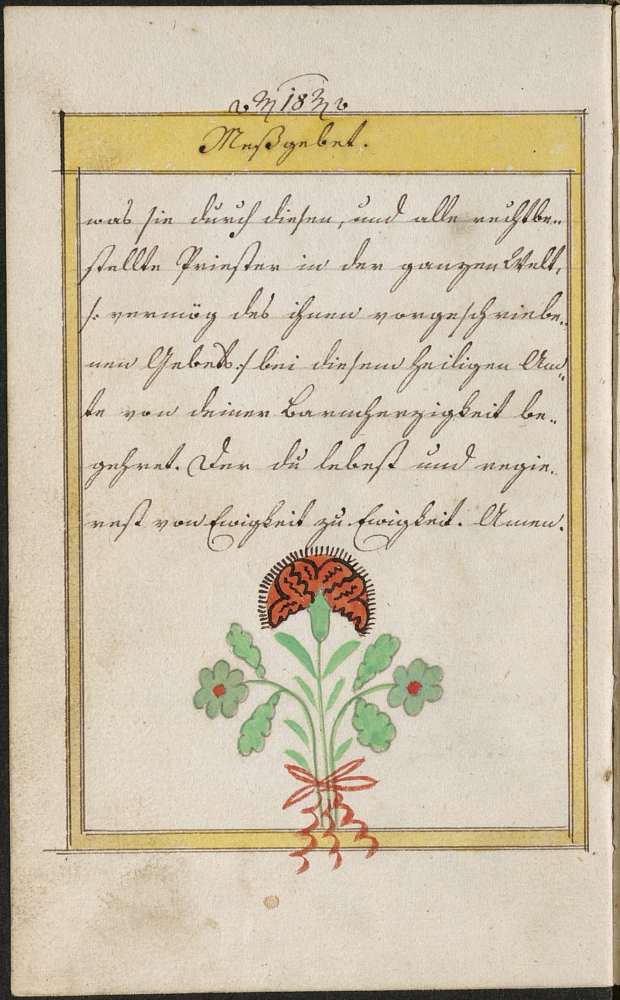 18
Meßgebet.
was sie durch diesen, und alle rechtbe„
stellte Priester in der ganzen Welt,
/: vermög des ihnen vorgeschriebe„
nen Gebets :/ bei diesem heiligen Am„
te von deiner Barmherzigkeit be„
gehret. Der du lebest und regie„
rest von Ewigkeit zu Ewigkeit. Amen.